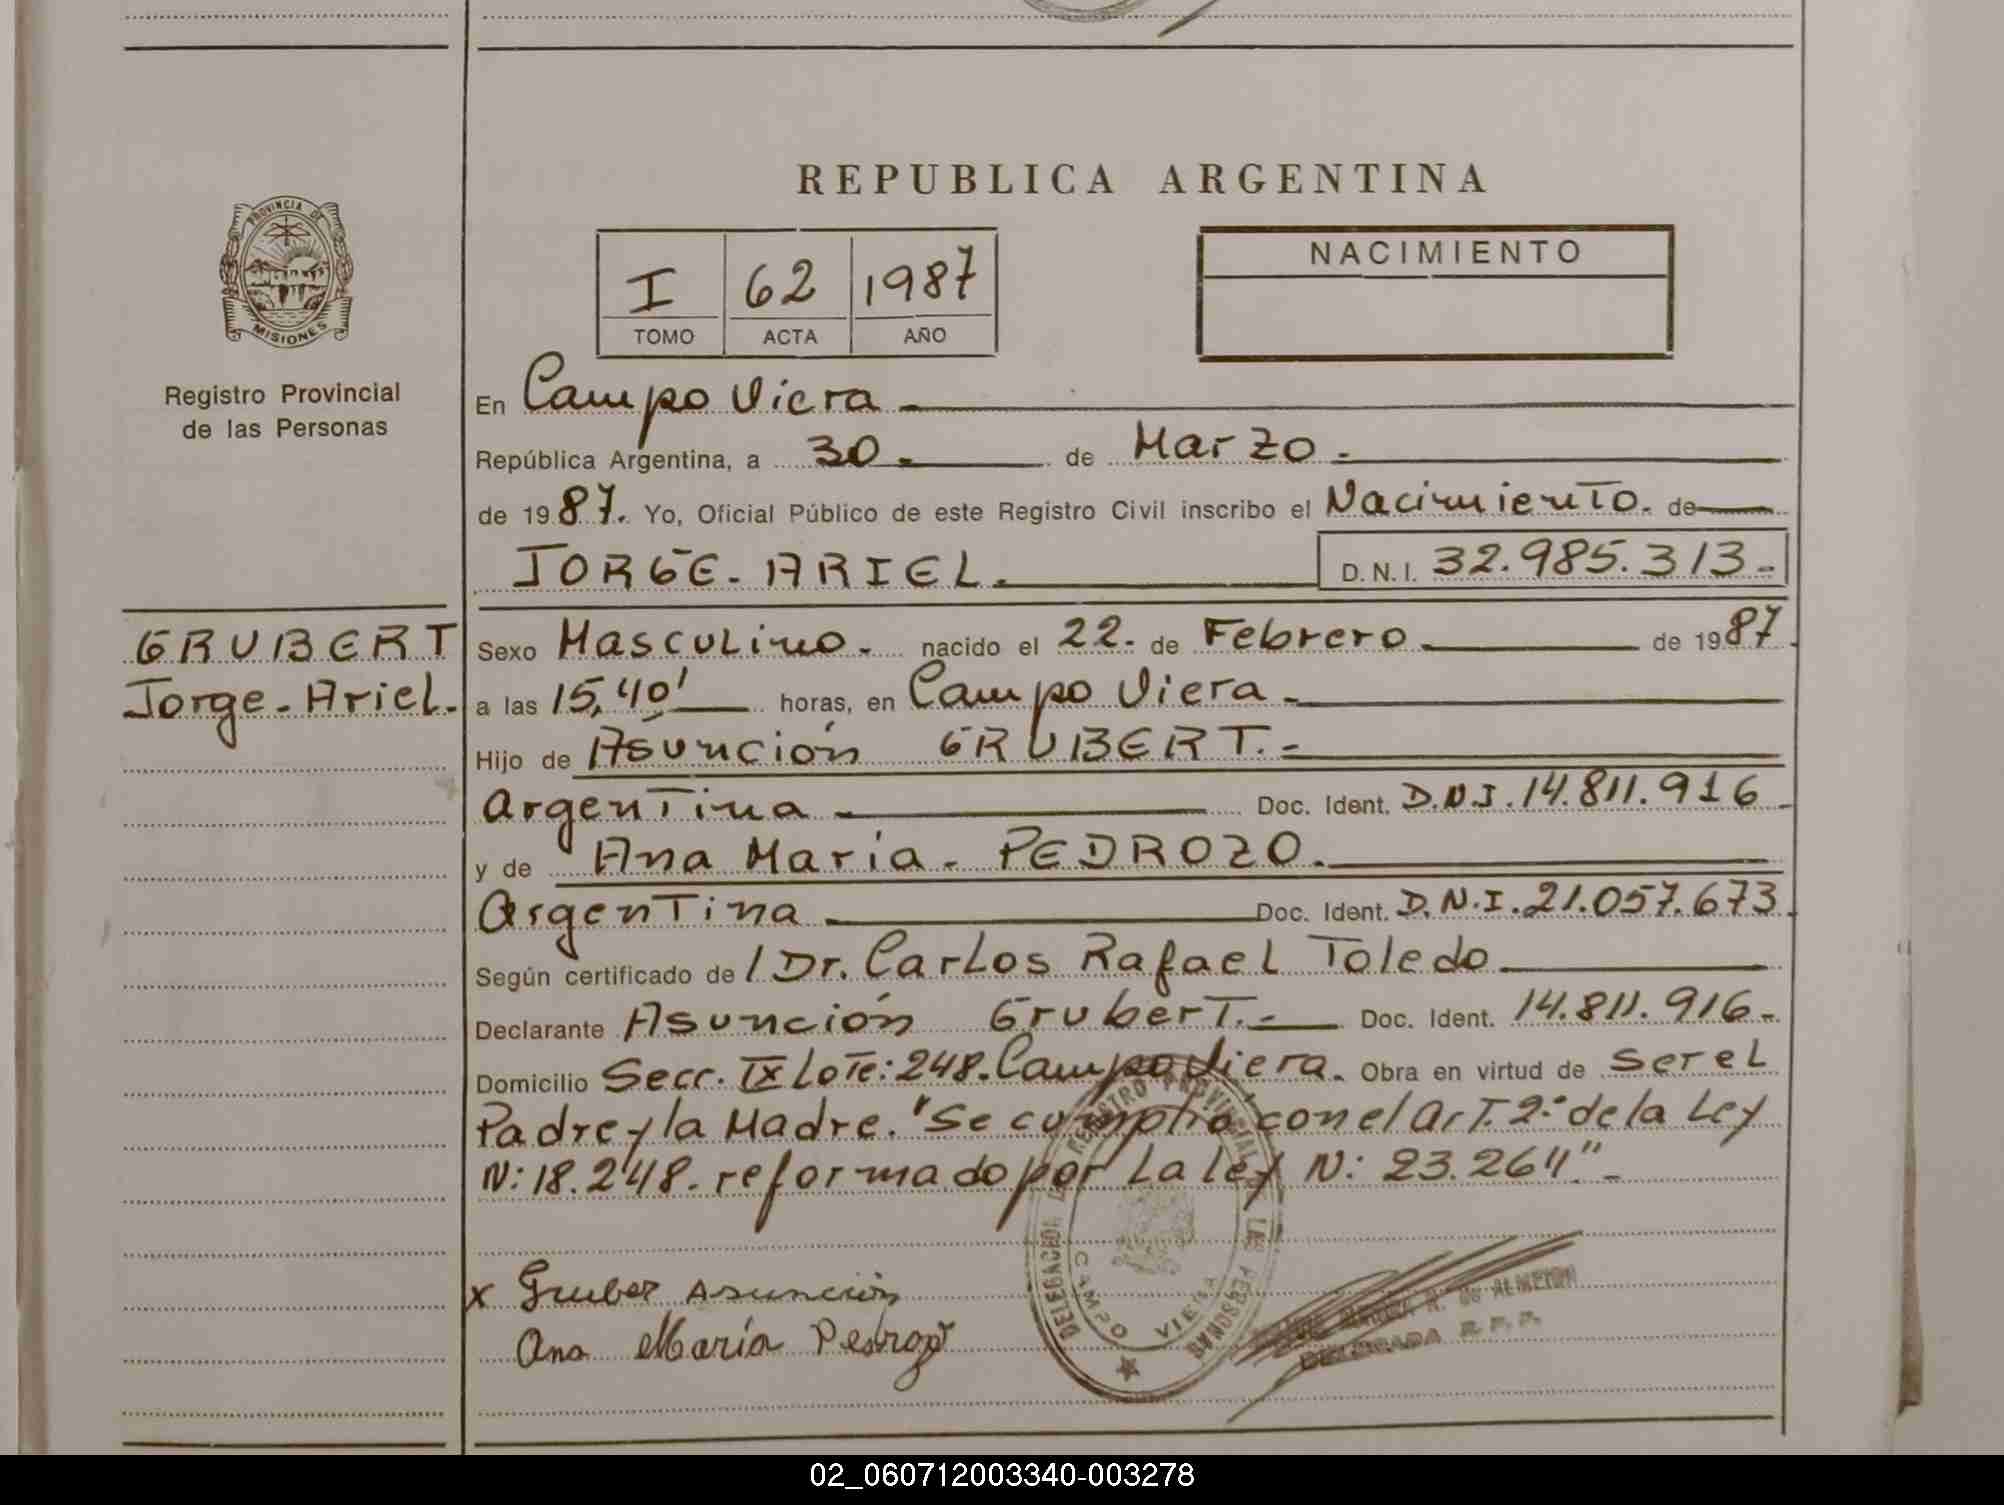 REPUBLICA ARGENTINA
PROVINCIA DE
MISIONES
Registro Provincial
de las Personas
I 62 1987
TOMO ACTA AÑO
NACIMIENTO
En Campo Viera
República Argentina, a 30. de Marzo.
de 1987. Yo, Oficial Público de este Registro Civil inscribo el Nacimiento. de
JORGE-ARIEL. D.N.I. 32.985.313-
GRUBERT
Jorge-Ariel.
Sexo Masculino. nacido el 22. de Febrero de 1987
a las 15,40' horas, en Campo Viera-
Hijo de Asunción GRUBERT.-
Argentina Doc. Ident. D.N.I. 14.811.916
y de Ana María- PEDROZO.
Argentina Doc. Ident. D.N.I. 21.057.673
Según certificado de / Dr. Carlos Rafael Toledo
Declarante Asunción Grubert.- Doc. Ident. 14.811.916-
Domicilio Secc. IX Lote: 248. Campo Viera. Obra en virtud de ser el
Padre y la Madre. "Se cumplió con el Art. 2º de la Ley
N: 18.248. reformado por La Ley N: 23.264"-
x Gruber Asunción
Ana María Pedrozo
DELEGACION REGISTRO PROVINCIAL DE LAS PERSONAS
CAMPO VIERA
DELEGADA R. P. P.
02_060712003340-003278